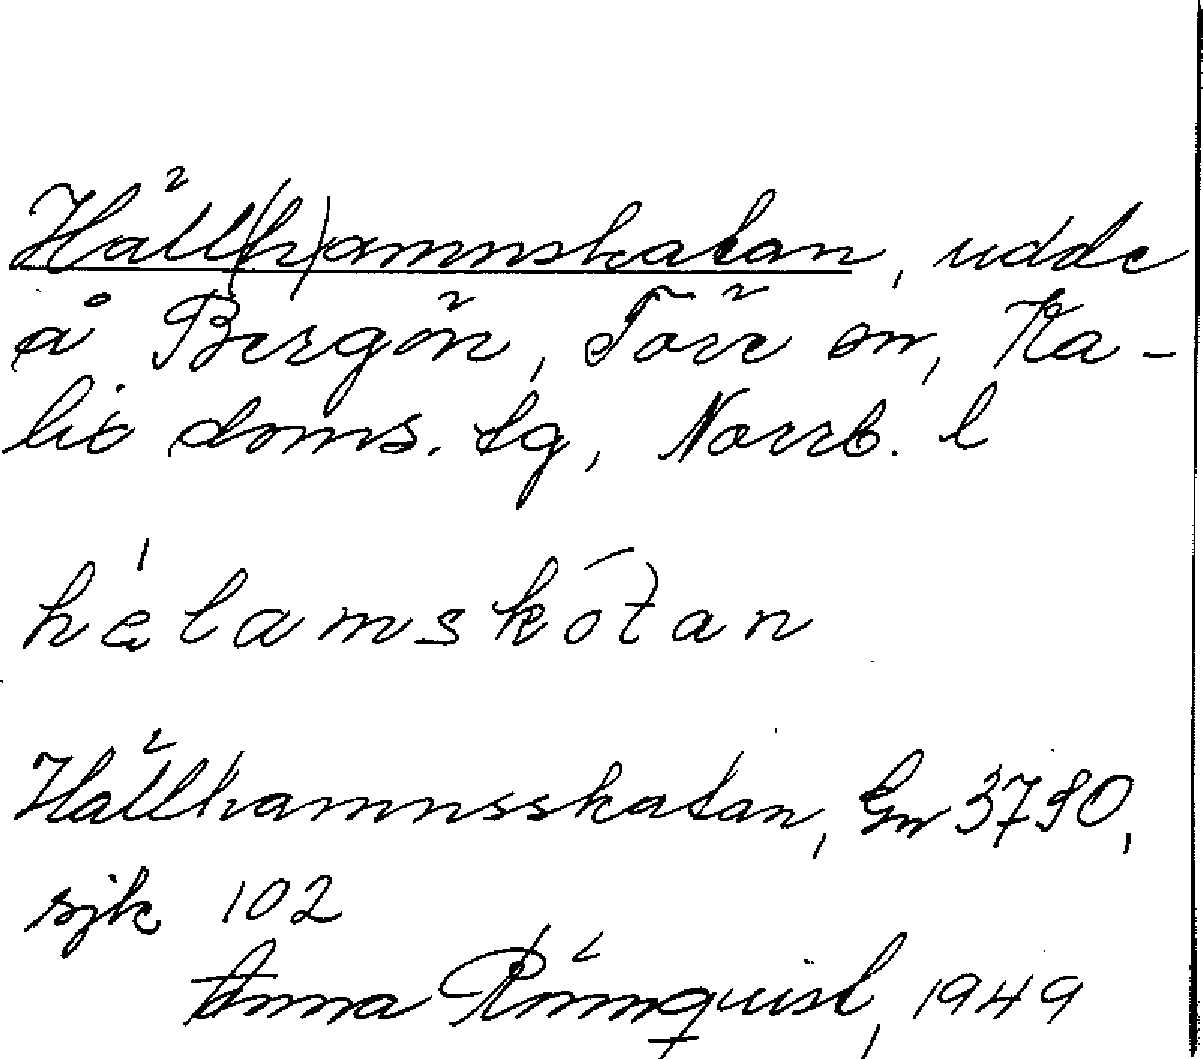 Häll(h)amnskatan, udde
å Bergön, Töre sn, Ka-
lix doms. tg, Norrb. l
hèlamskótan
Hällhamnsskatan, Gn 3790,
sjk 102
Anna Rönnqvist, 1949